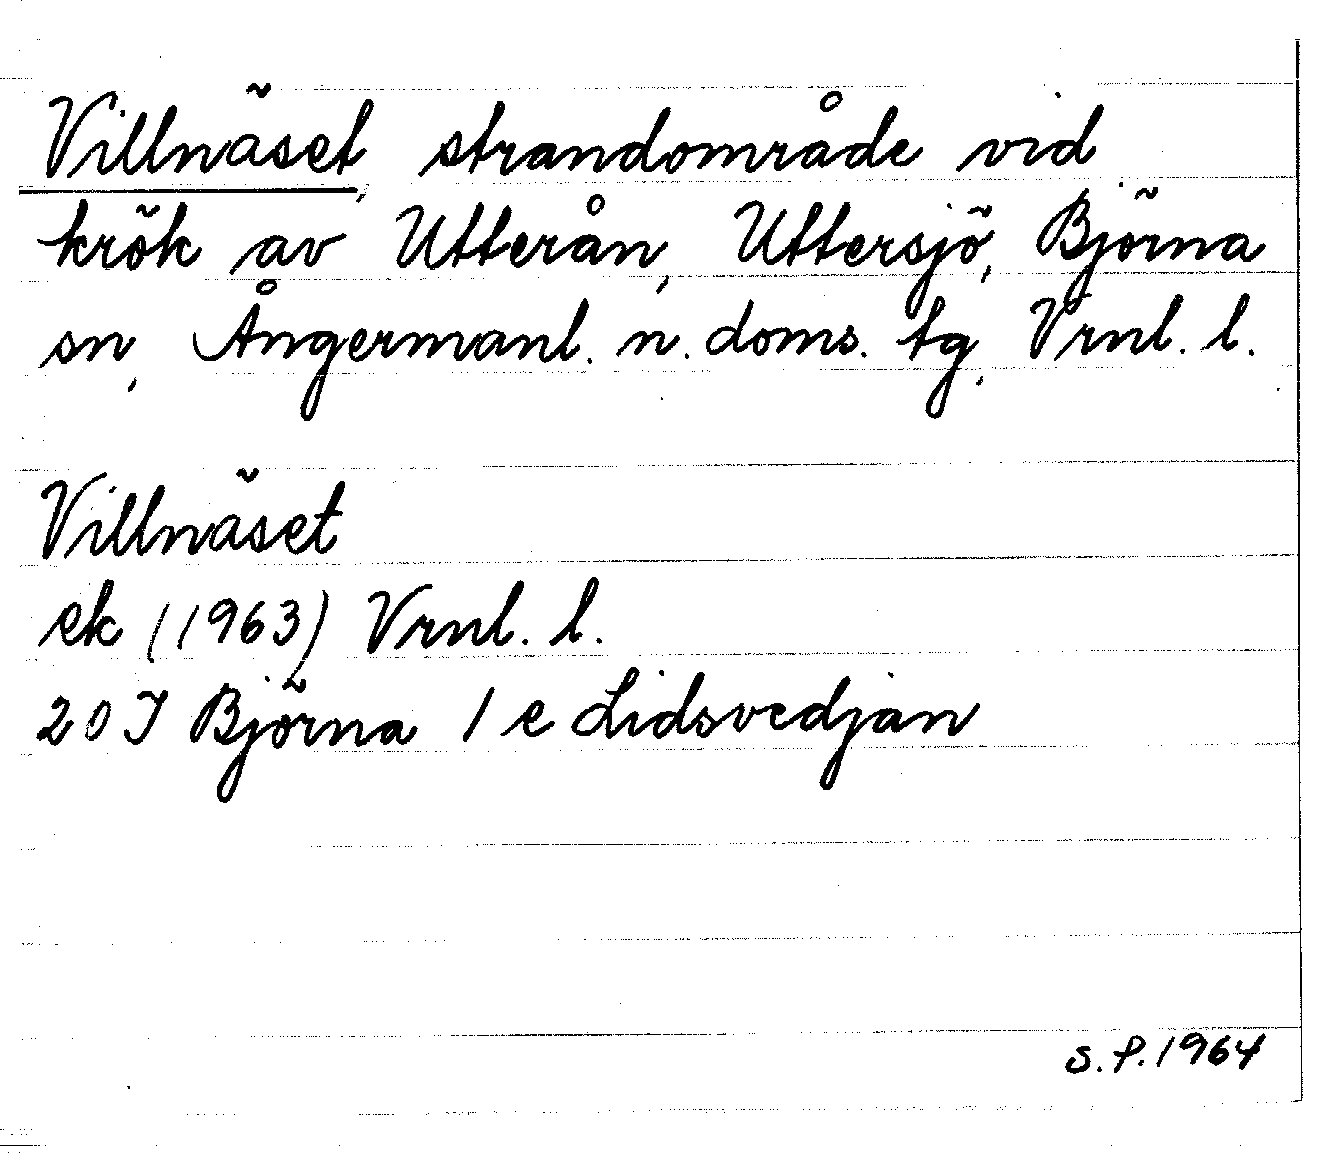 Villnäset, strandområde vid
krök av Utterån, Uttersjö, Björna
sn, Ångermanl. n. doms. tg, Vrnl. l.
Villnäset
ek (1963) Vrnl. l.
20 I Björna 1 e Lidsvedjan
S.P. 1964